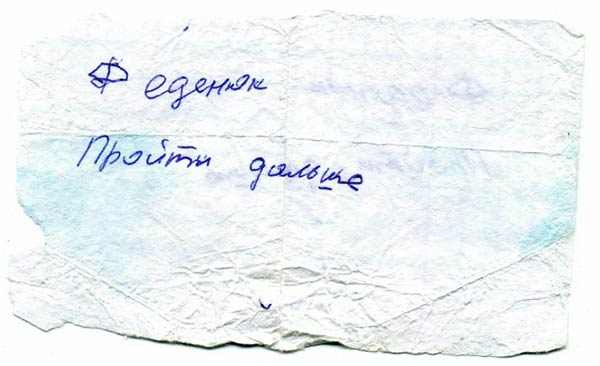 Феденюк
Пройти дальше